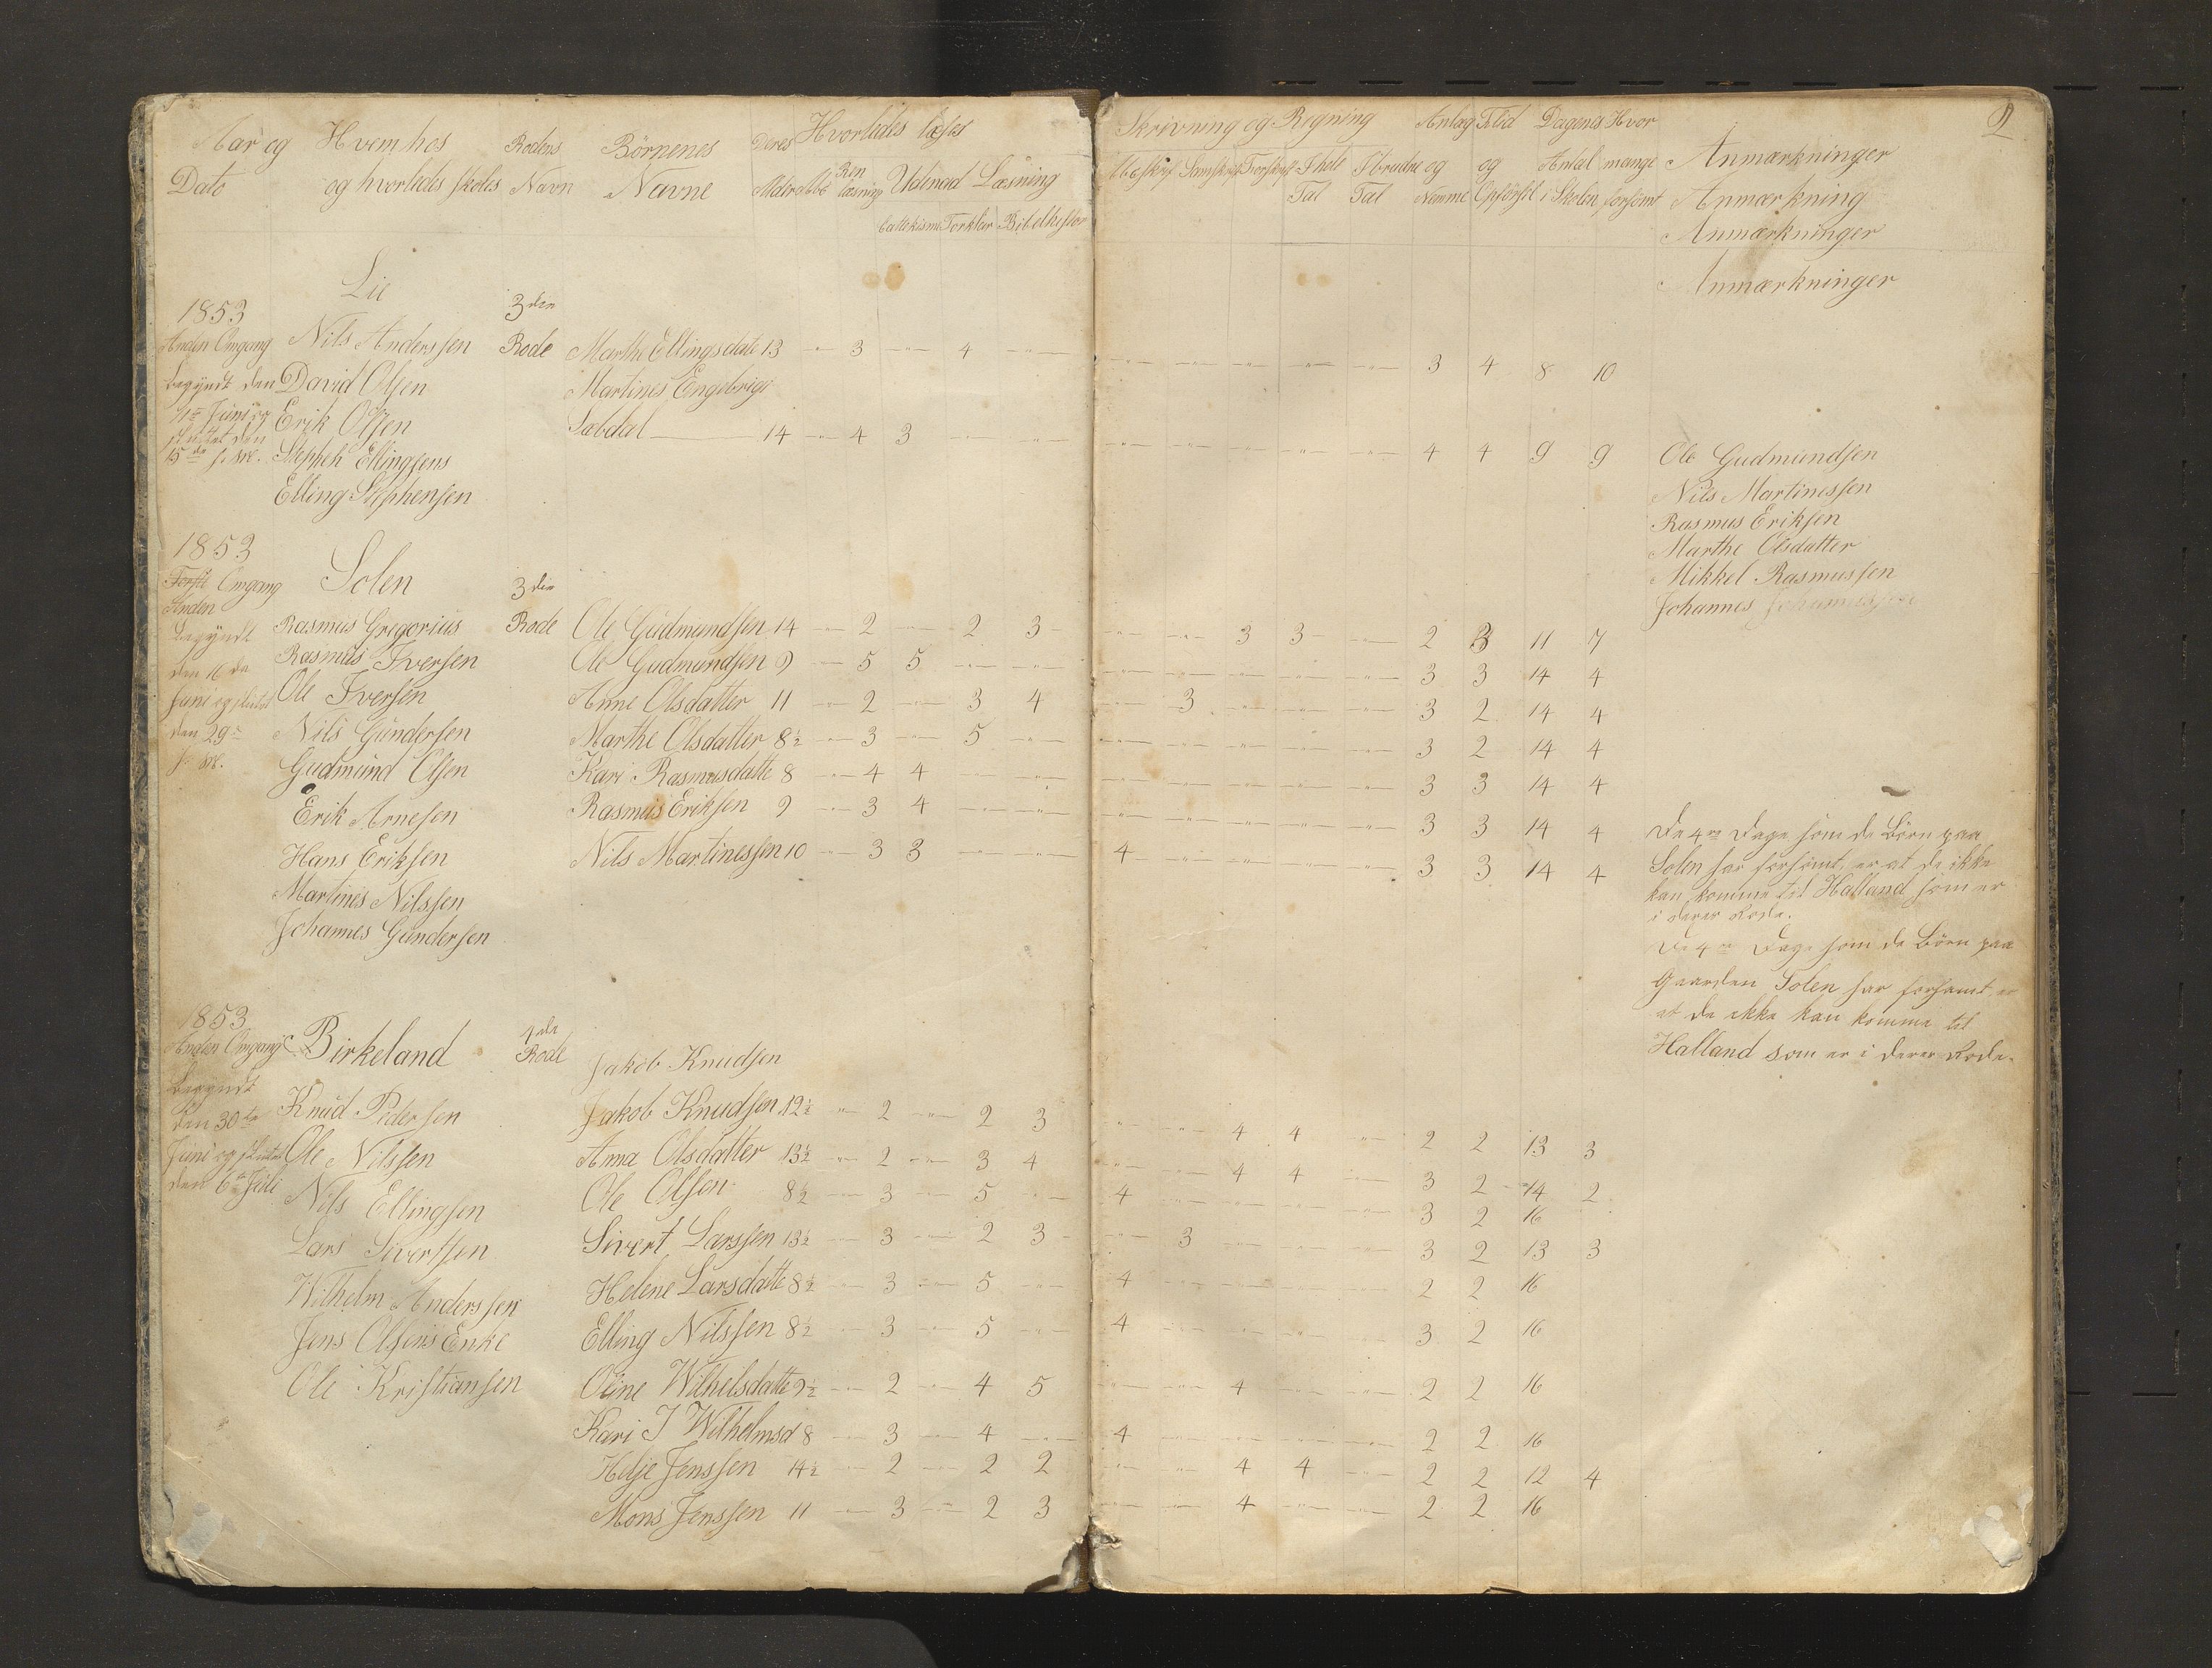 Aar og Hvem hos Rodens Börnenes Deres Hvorledes læses
Dato og hvorledes skoles Navn Navne Alder Abc Ren læsning Udenad Læsning
Cattekisme Forklar Bibelhistor
Lie
1853 3den
Anden Omgang Nils Anderssen Rode Marthe Ellingsdate 13 " 3 " 4 "
begyndt den David Olsen Martines Engebrigs
Juni og Erik Olsen Sæbdal 14 " 4 3 " "
sluttet den
15de s. M. Stephen Ellingsens
Elling Stephensen
1853
Første Omgang Solen 3den
Anden
begyndt Rasmus Gregorius Rode Ole Gudmundsen 14 " 2 " 2 3
den 16de Rasmus Iversen Ole Gudmundsen 9 " 5 5 " "
Juni og sluttet Ole Iversen Anne Olsdatter 11 " 2 " 3 4
den 29 Nils Gundersen Marthe Olsdatter 8½ " 3 " 5 "
s. M. Gudmund Olsen Kari Rasmusdatte 8 " 4 4 " "
Erik Arnesen Rasmus Eriksen 9 " 3 4 " "
Hans Eriksen Nils Martinessen 10 " 3 3 " "
Martines Nilssen
Johannes Gundersen
1853 4de
Anden Omgang Birkeland Rode Jakob Knudsen
begyndt
den 30te Knud Pedersen Jakob Knudsen 12½ " 2 " 2 3
Juni og sluttet Ole Nilssen Anna Olsdatter 13½ " 2 " 3 4
den 6te Juli Nils Ellingsen Ole Olsen 8½ " 3 " 5 "
Lars Siverssen Sivert Larssen 13½ " 3 " 2 3
Wilhelm Anderssen Helene Larsdatte 8½ " 3 " 5 "
Jens Olsens Enke Elling Nilssen 8½ " 3 " 5 "
Ole Kristiansen Oline Wilhelsdatte 9½ " 2 " 4 5
Kari J Wilhelmsd 8 " 3 " 4 "
Helje Jenssen 14½ " 2 " 2 2
Mons Jenssen 11 " 3 " 2 3
2
Skrivning og Regning Anlæg Flid Dagenes Hvor
Abcskrif Samskrif Forskrift I hele I brudne og og Antal mange Anmærkninger
Tal Tal Nemme Opförsel i Skolen forsömt Anmærkning
Anmærkninger
Anmærkninger
" " " " " 3 4 8 10
" " " " " 4 4 9 9 Ole Gudmundsen
Nils Martinessen
Rasmus Eriksen
Marthe Olsdatter
Mikkel Rasmussen
Johannes Johannessen
" " 3 3 " 2 3 11 7
" " " " " 3 3 14 4
" 3 " " " 3 2 14 4
" " " " " 3 2 14 4
" " " " " 3 3 14 4
" " " " " 3 3 14 4
4 " " " " 3 3 14 4
De 4re Dage som de Börn paa
Solen har forsömt, er at de ikke
kan komme til Halland som er
i deres Rode.
De 4re Dage som de Börn paa
Gaarden Solen har forsømt, er
at de ikke kan komme til
Halland som er i deres Rode.
" " 4 4 " 2 2 13 3
" " 4 4 " 3 2 14 2
4 " " " " 3 2 16
" 3 " " " 3 2 13 3
4 " " " " 2 2 16
4 " " " " 3 2 16
" " 4 " " 2 2 16
4 " " " " 2 2 16
" " 4 4 " 2 2 12 4
" " 4 " " 2 2 16